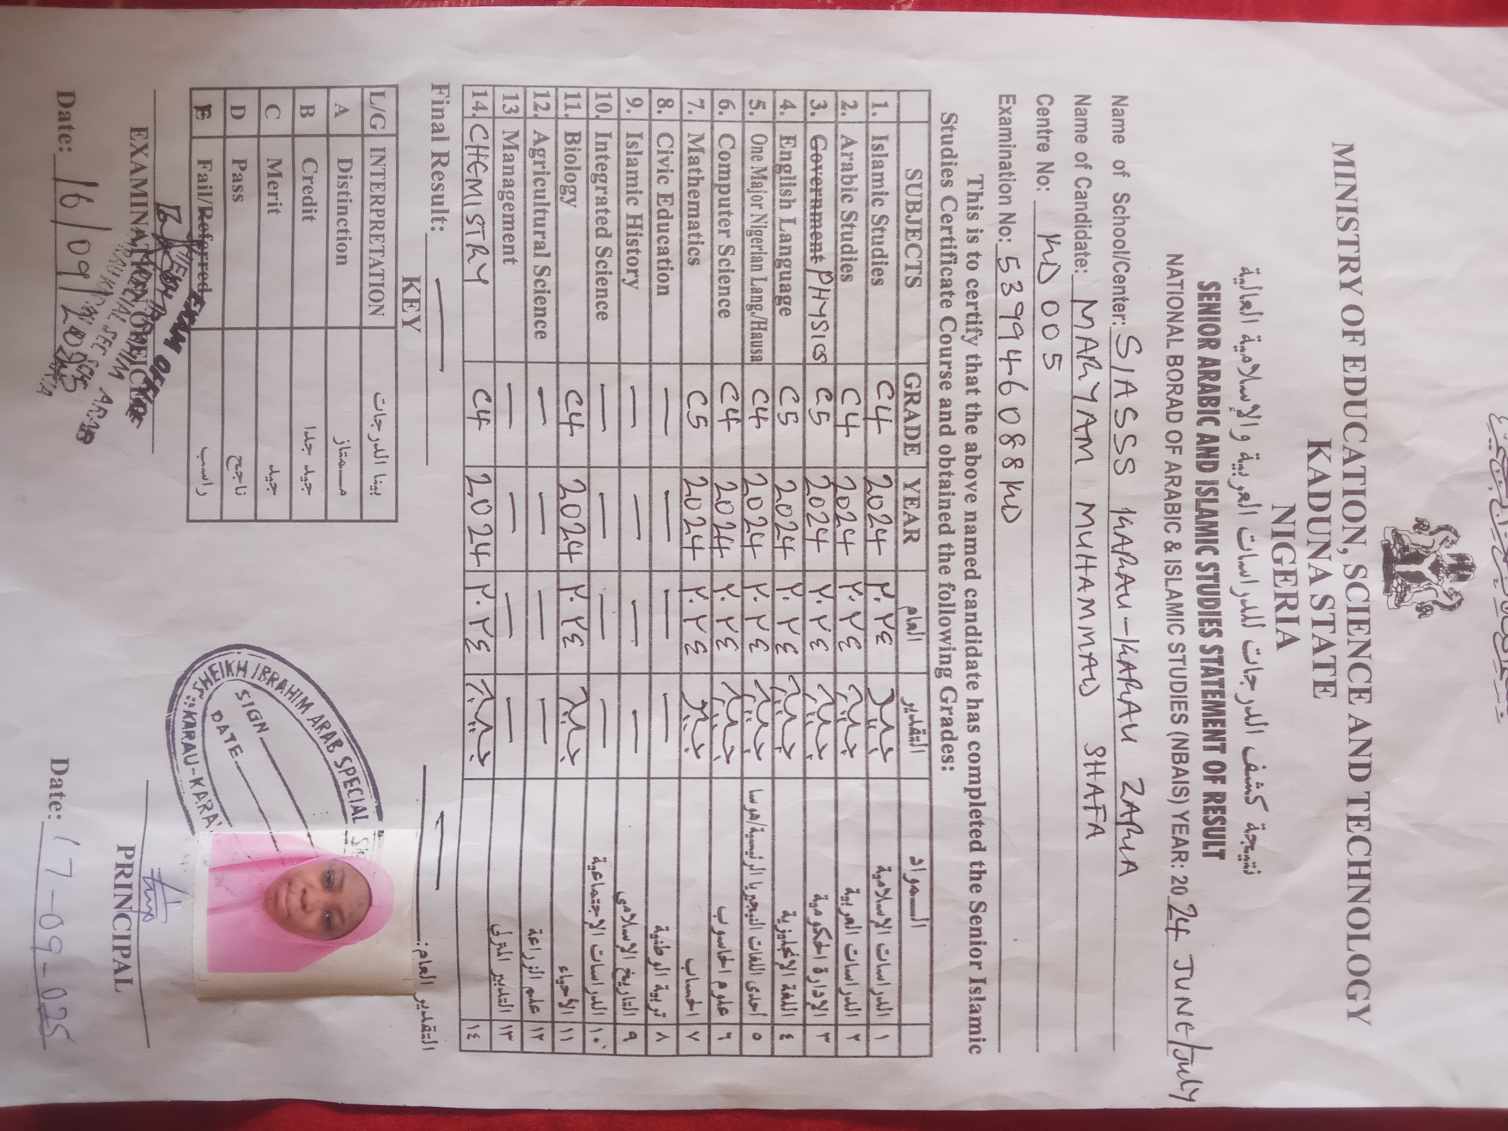 MINISTRY OF EDUCATION, SCIENCE AND TECHNOLOGY
KADUNA STATE
NIGERIA
نتيجة كشف الدرجات للدراسات العربية والإسلامية العالية
SENIOR ARABIC AND ISLAMIC STUDIES STATEMENT OF RESULT
NATIONAL BORAD OF ARABIC & ISLAMIC STUDIES (NBAIS) YEAR: 2024 JUNE/JULY
Name of School/Center: S/ASSS KARAU-KARAU ZARIA
Name of Candidate: MARYAM MUHAMMAD SHAFA
Centre No: KD 005
Examination No: 539946088KD
This is to certify that the above named candidate has completed the Senior Islamic
Studies Certificate Course and obtained the following Grades:
SUBJECTS GRADE YEAR العام التقدير المواد
1. Islamic Studies C4 2024 ٢٠٢٤ جيد الدراسات الإسلامية ١
2. Arabic Studies C4 2024 ٢٠٢٤ جيد الدراسات العربية ٢
3. Government PHYSICS C5 2024 ٢٠٢٤ جيد الإدارة الحكومية ٣
4. English Language C5 2024 ٢٠٢٤ جيد اللغة الإنجليزية ٤
5. One Major Nigerian Lang./Hausa C4 2024 ٢٠٢٤ جيد احدى اللغات النيجيريا الرئيسية/هوسا ٥
6. Computer Science C4 2024 ٢٠٢٤ جيد علوم الحاسوب ٦
7. Mathematics C5 2024 ٢٠٢٤ جيد الحساب ٧
8. Civic Education — — — — تربية الوطنية ٨
9. Islamic History — — — — التاريخ الإسلامي ٩
10. Integrated Science — — — — الدراسات الإجتماعية ١٠
11. Biology C4 2024 ٢٠٢٤ جيد الأحياء ١١
12. Agricultural Science — — — — علم الزراعة ١٢
13 Management — — — — التدبير المنزلى ١٣
14. CHEMISTRY C4 2024 ٢٠٢٤ جيد ١٤
Final Result: — — التقدير العام:
KEY
L/G INTERPRETATION بينا الدرجات
A Distinction ممتاز
B Credit جيد جدا
C Merit جيد
D Pass ناجح
F Fail/Referred راسب
EXAM OFFICE
EXAMINATION OFFICER
Date: 16/09/2025
SHEIKH IBRAHIM ARAB SPECIAL
SIGN
DATE
KARAU-KARA
PRINCIPAL
Date: 17-09-025